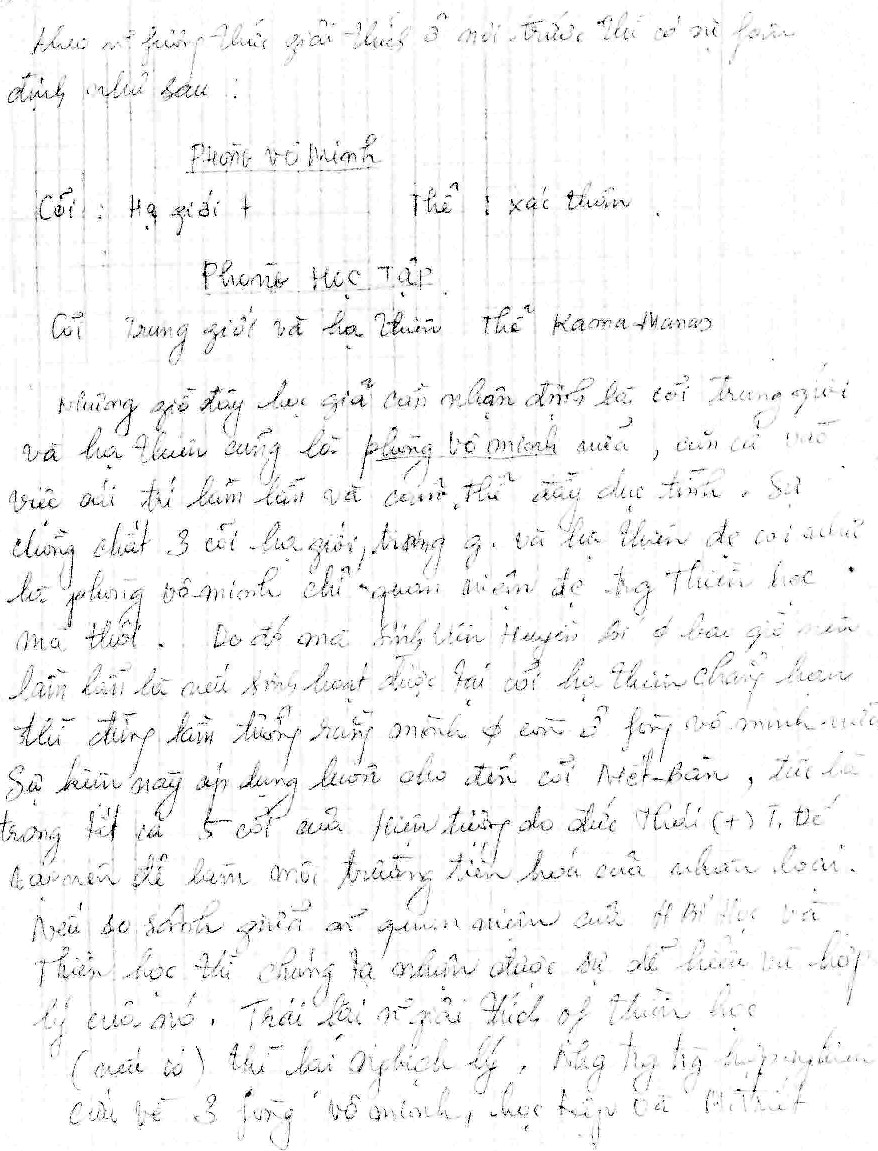 theo # fương thức giải thích ở nơi trước thì có sự fân
định như sau :
Phòng vô Minh
Cõi : Hạ giới + Thể : xác thân .
Phòng Học Tập
Cõi Trung giới và hạ thiên Thể Kama-Manas
Nhưng giờ đây học giả cần nhận định là cõi trung giới
và hạ thiên cũng là phòng vô minh nữa , căn cứ vào
việc cái trí lầm lẫn và cảm thể đầy dục tính . Sự
chồng chất 3 cõi hạ giới, trung g. và hạ thiên đc coi như
là phòng vô minh chỉ quan niệm đc trg Thiên học
mà thôi . Do đó mà sinh viên Huyền bí ∅ bao giờ nên
lầm lẫn là nếu sinh hoạt được tại cõi hạ thiên chẳng hạn
thì đừng lầm tưởng rằng mình ∅ còn ở fòng vô minh nữa
Sự kiện này áp dụng luôn cho đến cõi Niết-Bàn , tức là
trong tất cả 5 cõi của Hiện tượng do đức Thái (+) T. Đế
tạo nên để làm môi trường tiến hoá của nhân loại .
Nếu so sánh giữa # quan niệm của H Bí Học và
Thiên học thì chúng ta nhận được sự dễ hiểu và hợp
lý của nó . Trái lại # giải thích of thiên học
(nếu có) thì lại nghịch lý . Nhg trg trg hợp nghiên
cứu về 3 fòng vô minh, học tập và M Triết